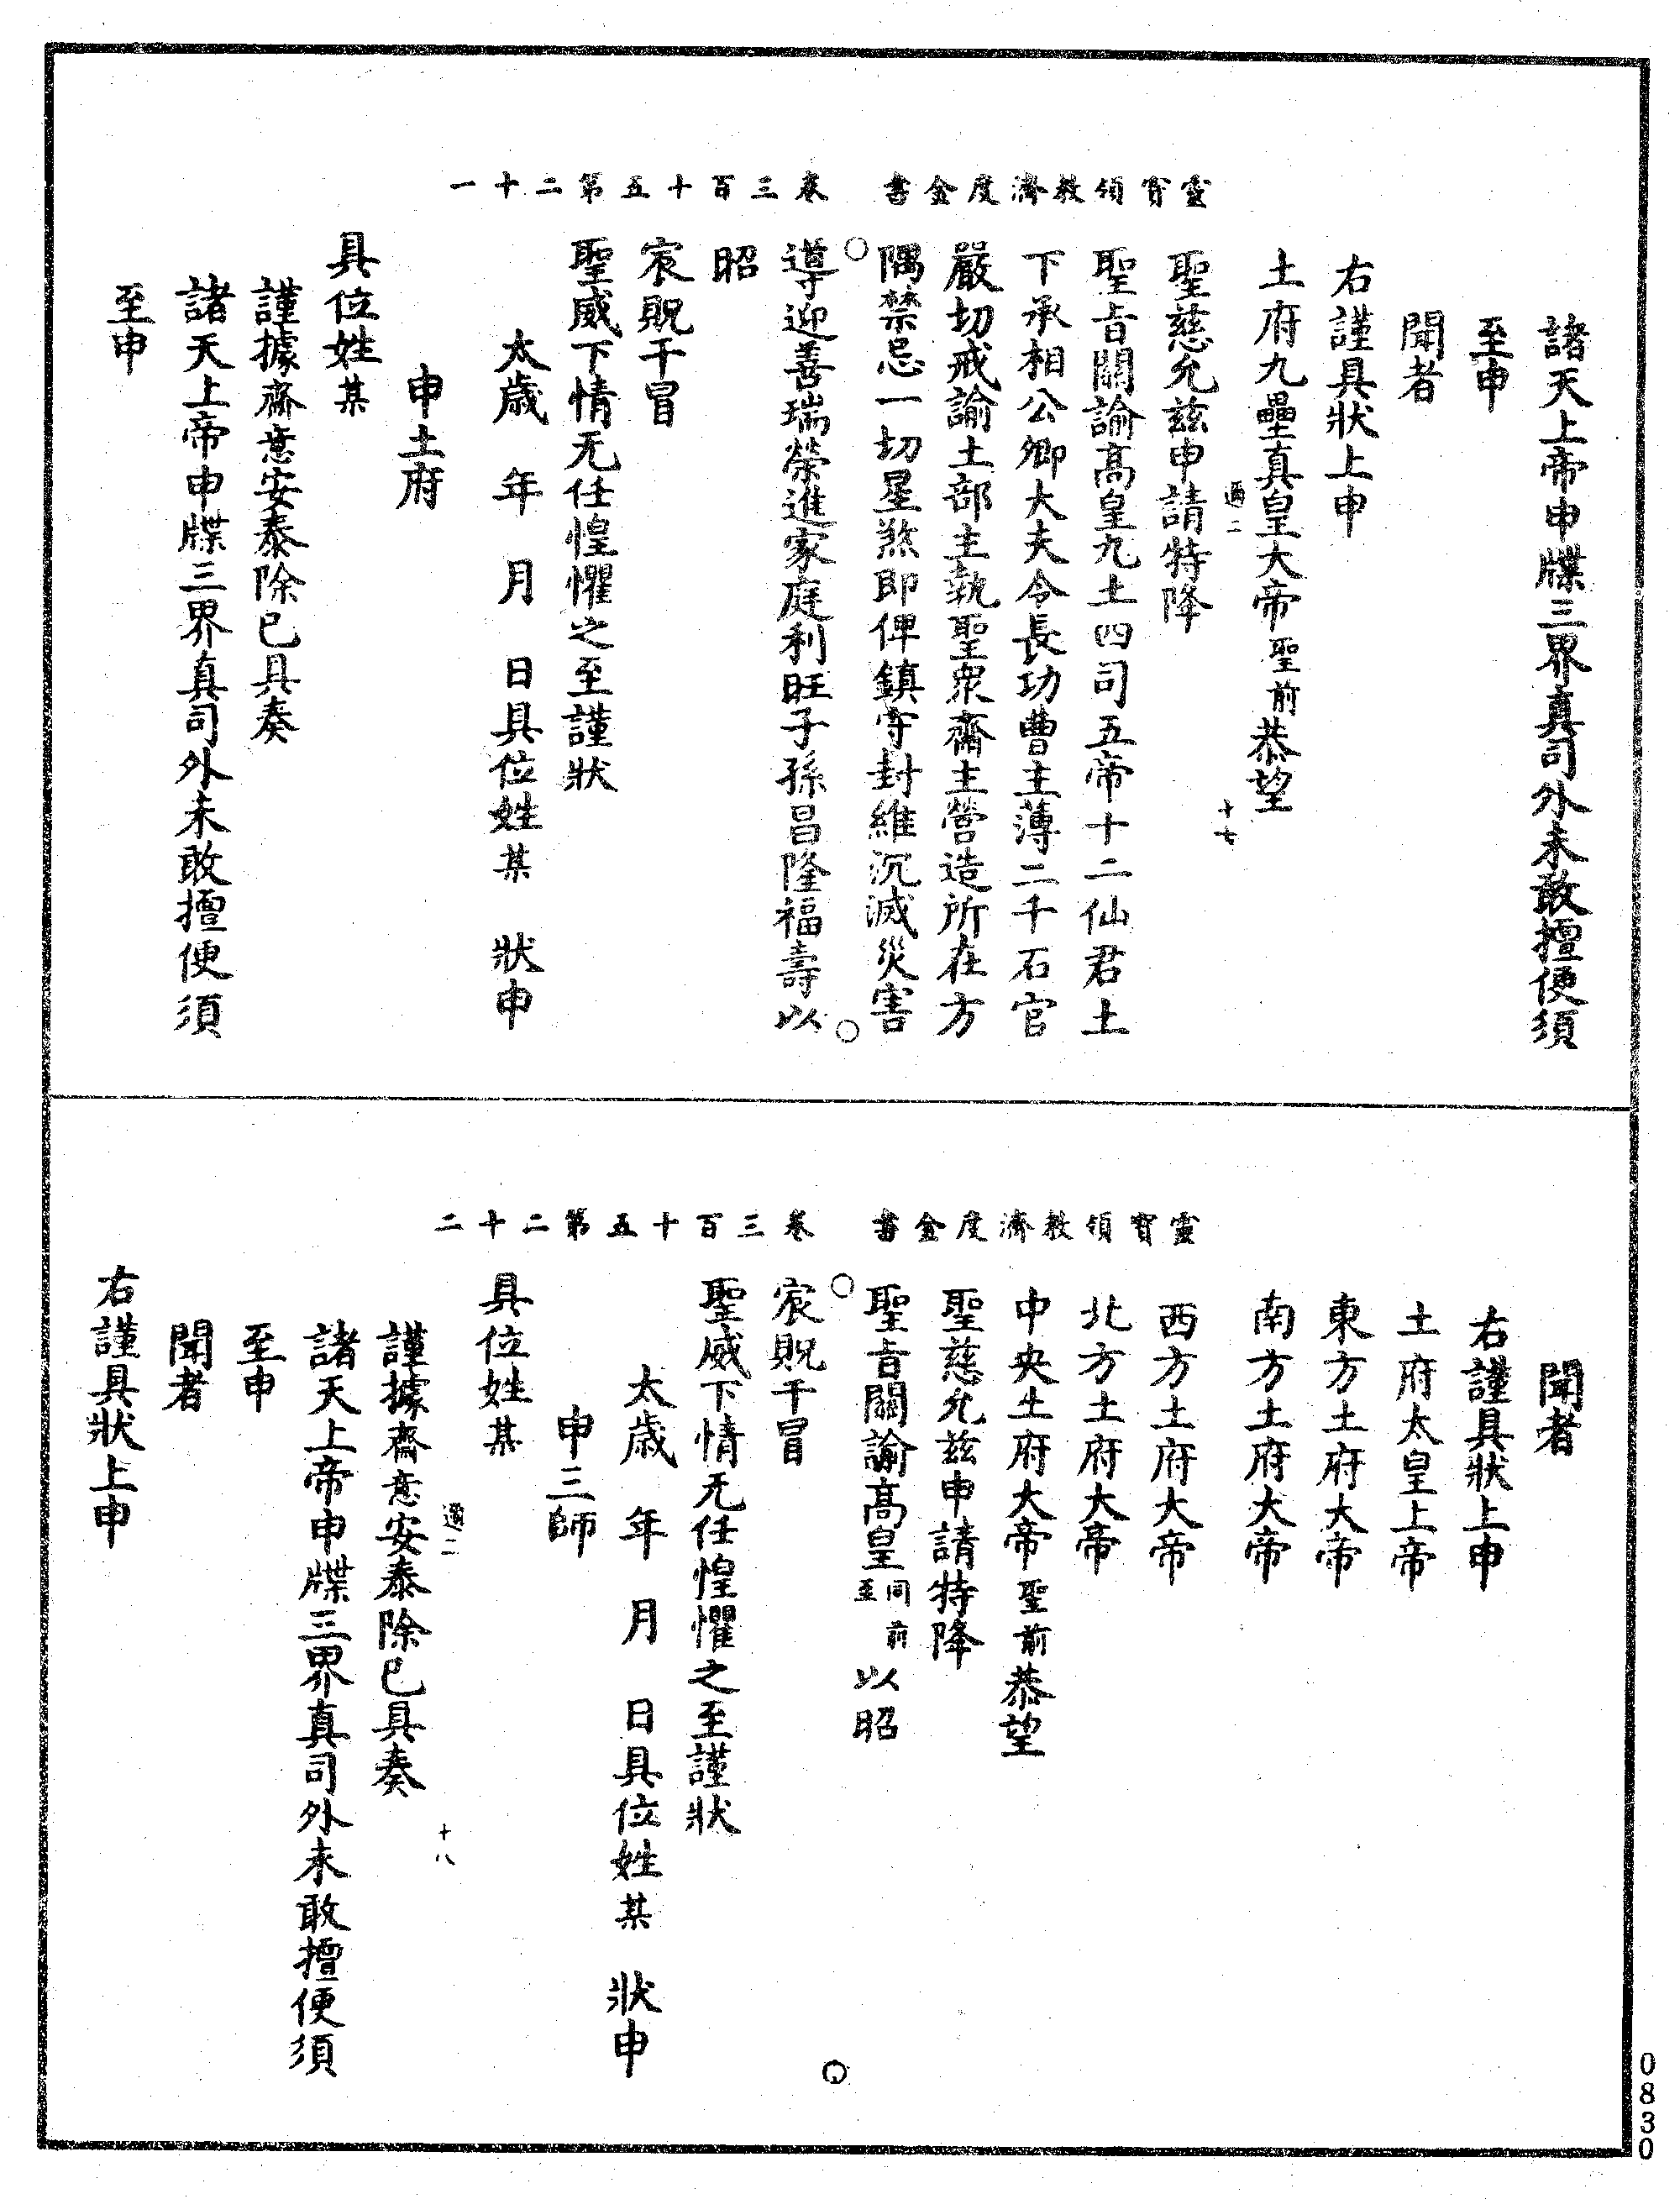 靈寶領教濟度金書　卷三百十五第二十一
諸天上帝申牒三界真司外未敢擅便須
至申
聞者
右謹具狀上申
土府九壘真皇大帝聖前恭望
適二　十七
聖慈允茲申請特降
聖旨關諭高皇九土四司五帝十二仙君土
下承相公卿大夫令長功曹主薄二千石官
嚴切戒諭土部主執聖眾齋主營造所在方
隅禁忌一切星煞即俾鎮守封維沉滅災害
導迎善瑞榮進家庭利旺子孫昌隆福壽以
昭
宸貺干冒
聖威下情无任惶懼之至謹狀
太歲　年　月　日具位姓某　狀申
申土府
具位姓某
謹據齋意安泰除已具奏
諸天上帝申牒三界真司外未敢擅便須
至申
靈寶領教濟度金書　卷三百十五第二十二
聞者
右謹具狀上申
土府太皇上帝
東方土府大帝
南方土府大帝
西方土府大帝
北方土府大帝
中央土府大帝聖前恭望
聖慈允茲申請特降
聖旨關諭高皇同前至以昭
宸貺干冒
聖威下情无任惶懼之至謹狀
太歲　年　月　日具位姓某　狀申
申三師
具位姓某
適二　十八
謹據齋意安泰除已具奏
諸天上帝申牒三界真司外未敢擅便須
至申
聞者
右謹具狀上申
0830